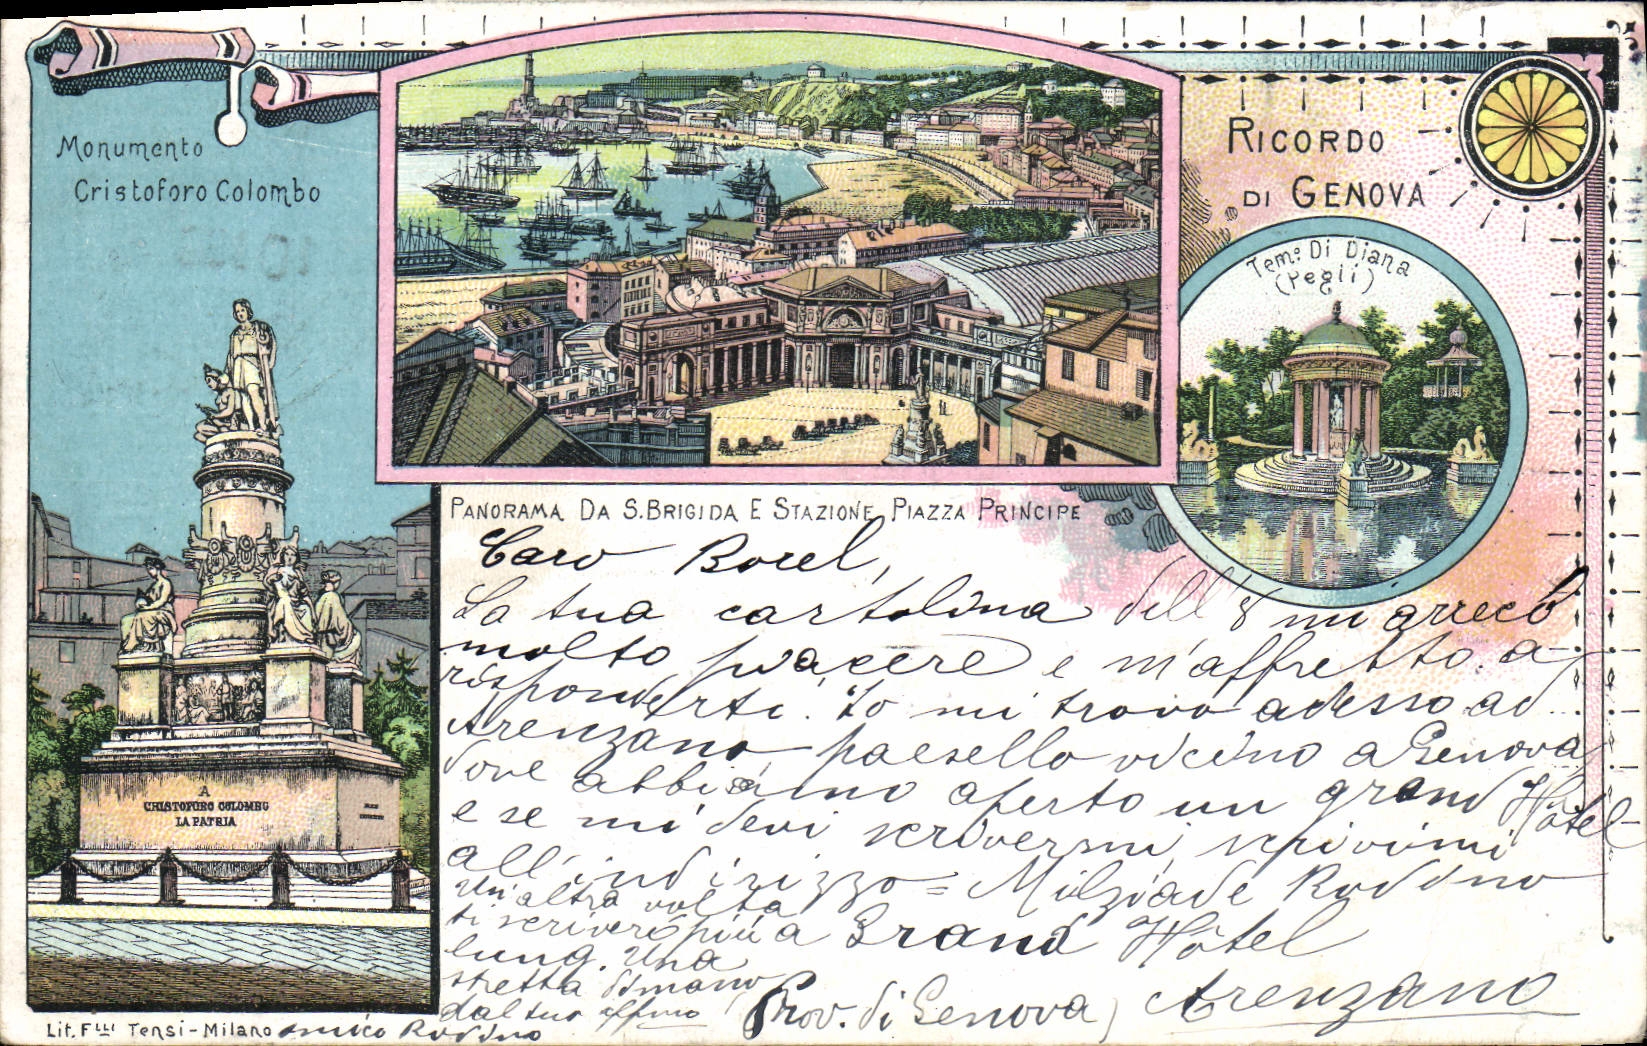 Monumento
Cristoforo Colombo
RICORDO
DI GENOVA
Tem.º Di Diana
(Pegli)
A
CRISTOFORO COLOMBO
LA PATRIA
PANORAMA DA S. BRIGIDA E STAZIONE PIAZZA PRINCIPE
Caro Borel,
La tua cartolina dell'8 mi arrecò
molto piacere e m'affretto a
risponderti. Io mi trovo adesso ad
Arenzano, paesello vicino a Genova
dove abbiamo aperto un grand Hôtel
e se mi devi scrivermi, scrivimi
all'indirizzo = Milziade Rodino
Grand Hôtel
(Prov. di Genova) Arenzano
Un'altra volta
ti scriverò più a
lung. Una
stretta di mano
dal tuo affmo
amico Rodino
Lit. F.lli Tensi - Milano